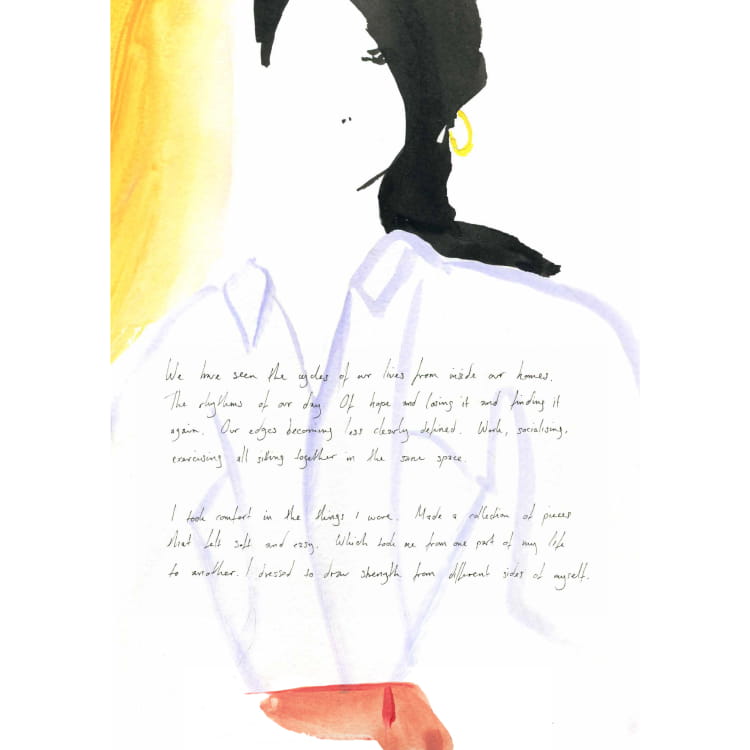 We have seen the cycles of our lives from inside our homes.
The rhythms of our day Of hope and losing it and finding it
again. Our edges becoming less clearly defined. Work, socialising,
exercising all sitting together in the same space.
I took comfort in the things I wore. Made a collection of pieces
that felt soft and easy. Which took me from one part of my life
to another. I dressed to draw strength from different sides of myself.